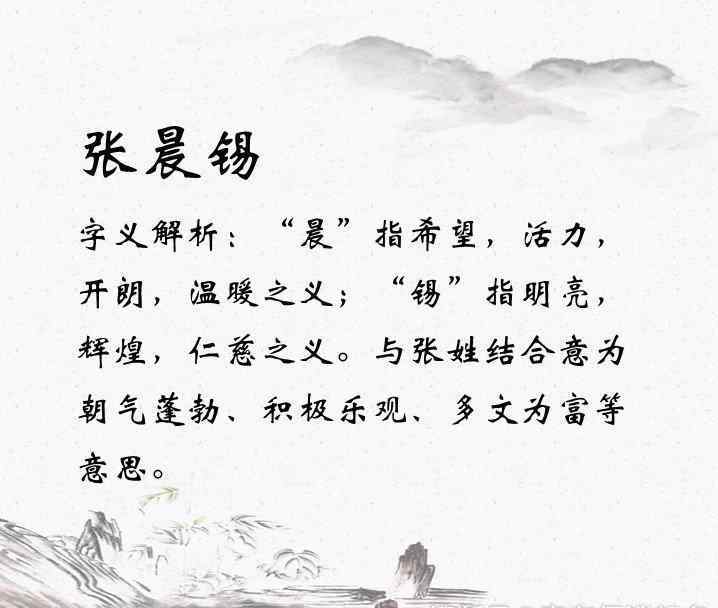 张晨锡
字义解析：“晨”指希望，活力，
开朗，温暖之义；“锡”指明亮，
辉煌，仁慈之义。与张姓结合意为
朝气蓬勃、积极乐观、多文为富等
意思。